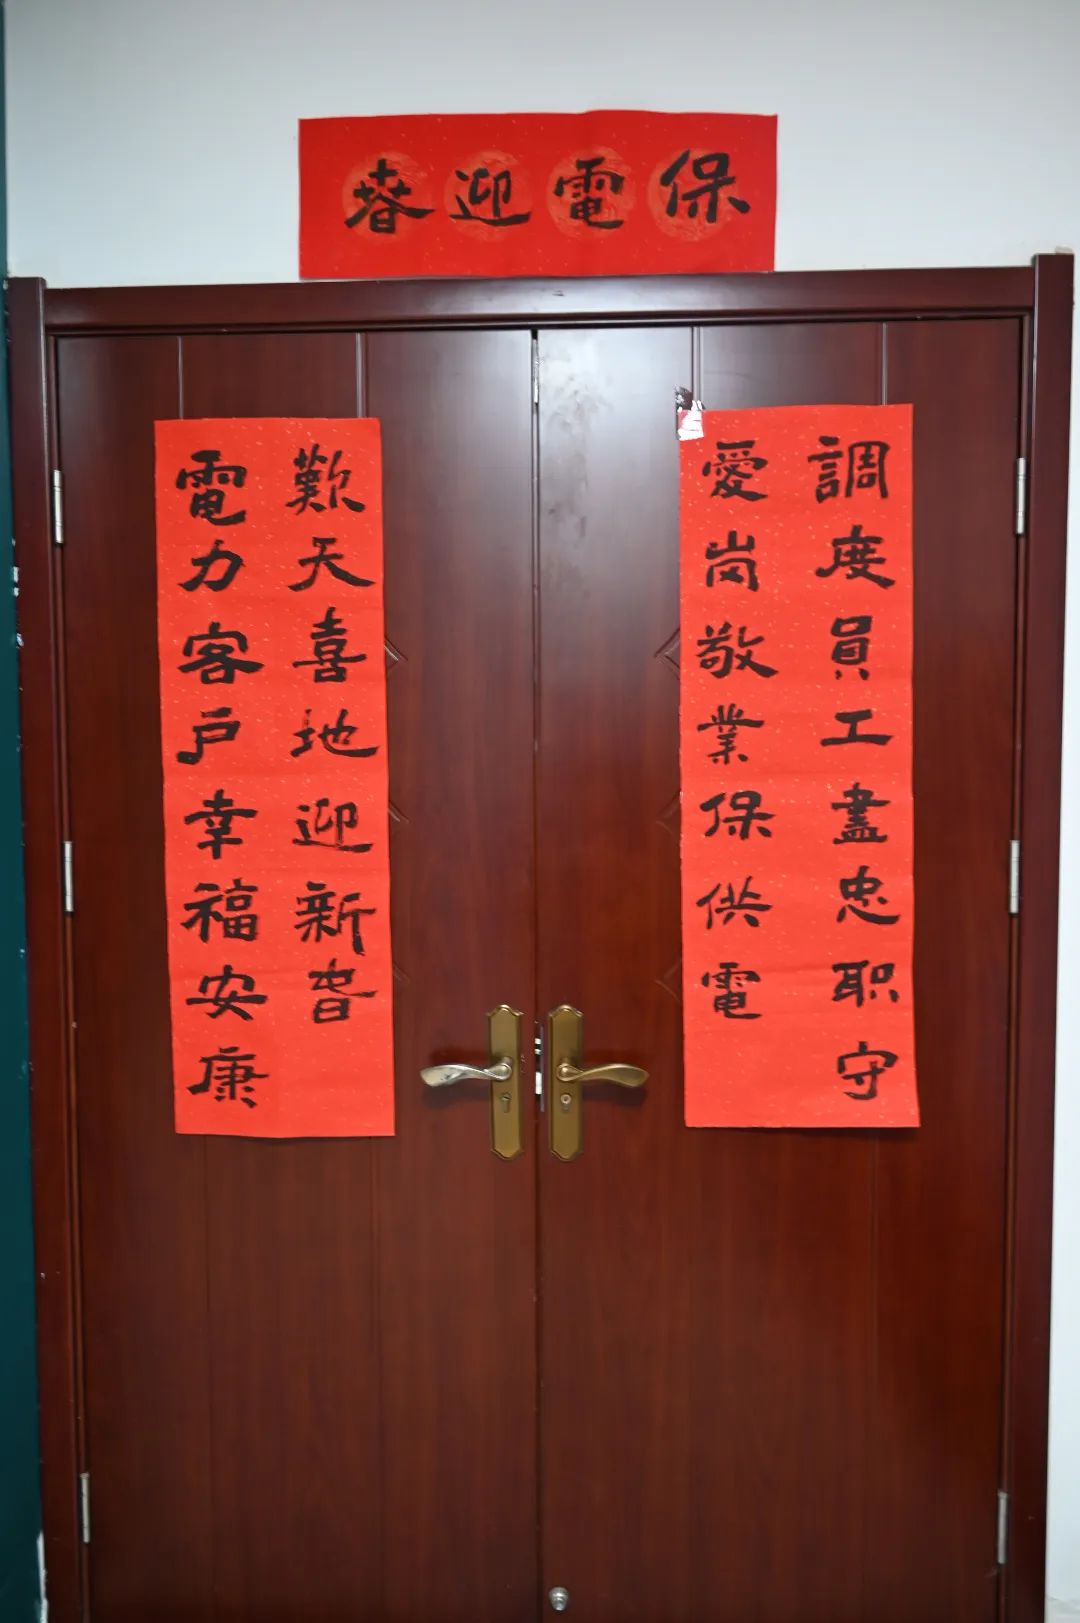 保電迎春
調度員工盡忠职守
愛岗敬業保供電
歎天喜地迎新春
電力客戶幸福安康